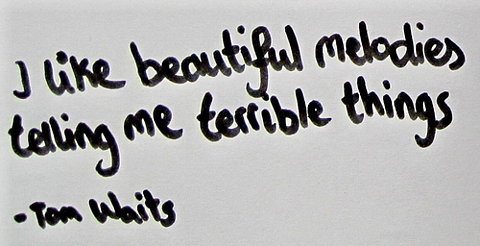 I like beautiful melodies
telling me terrible things
- Tom Waits